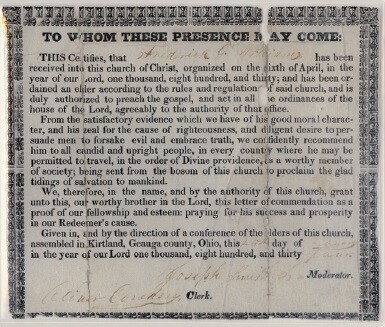 TO WHOM THESE PRESENCE MAY COME:
THIS Certifies, that has been
received into this church of Christ, organized on the sixth of April, in the
year of our Lord, one thousand, eight hundred, and thirty; and has been or-
dained an elder according to the rules and regulation of said church, and is
duly authorized to preach the gospel, and act in all the ordinances of the
house of the Lord, agreeably to the authority of that office.
From the satisfactory evidence which we have of his good moral charac-
ter, and his zeal for the cause of righteousness, and diligent desire to per-
suade men to forsake evil and embrace truth, we confidently recommend
him to all candid and upright people, in every country where he may be
permitted to travel, in the order of Divine providence, as a worthy member
of society; being sent from the bosom of this church to proclaim the glad
tidings of salvation to mankind.
We, therefore, in the name, and by the authority of this church, grant
unto this, our worthy brother in the Lord, this letter of commendation as a
proof of our fellowship and esteem: praying for his success and prosperity
in our Redeemer's cause.
Given in, and by the direction of a conference of the elders of this church,
assembled in Kirtland, Geauga county, Ohio, this day of
in the year of our Lord one thousand, eight hundred, and thirty
Joseph Smith Moderator.
Oliver Cowdery Clerk.